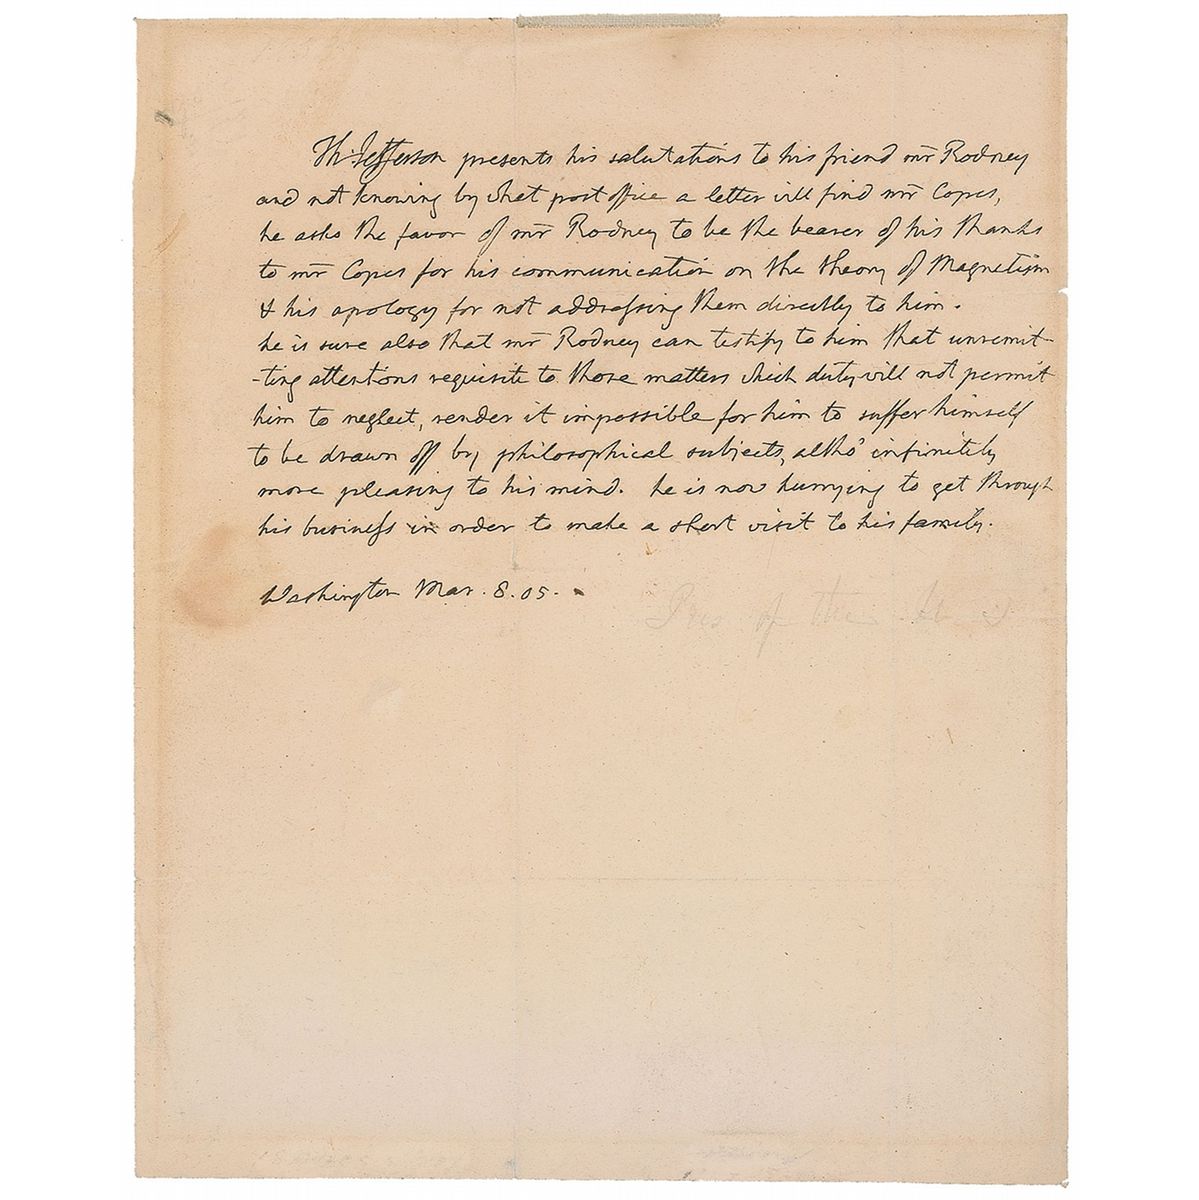 Th: Jefferson presents his salutations to his friend mr Rodney
and not knowing by what post office a letter will find mr Copes,
he asks the favor of mr Rodney to be the bearer of his thanks
to mr Copes for his communication on the theory of Magnetism
& his apology for not addressing them directly to him.
he is sure also that mr Rodney can testify to him that unremit-
-ting attentions requisite to those matters which duty will not permit
him to neglect, render it impossible for him to suffer himself
to be drawn off by philosophical subjects, altho' infinitely
more pleasing to his mind. he is now hurrying to get through
his business in order to make a short visit to his family.
Washington Mar. 8. 05.
Pres of the